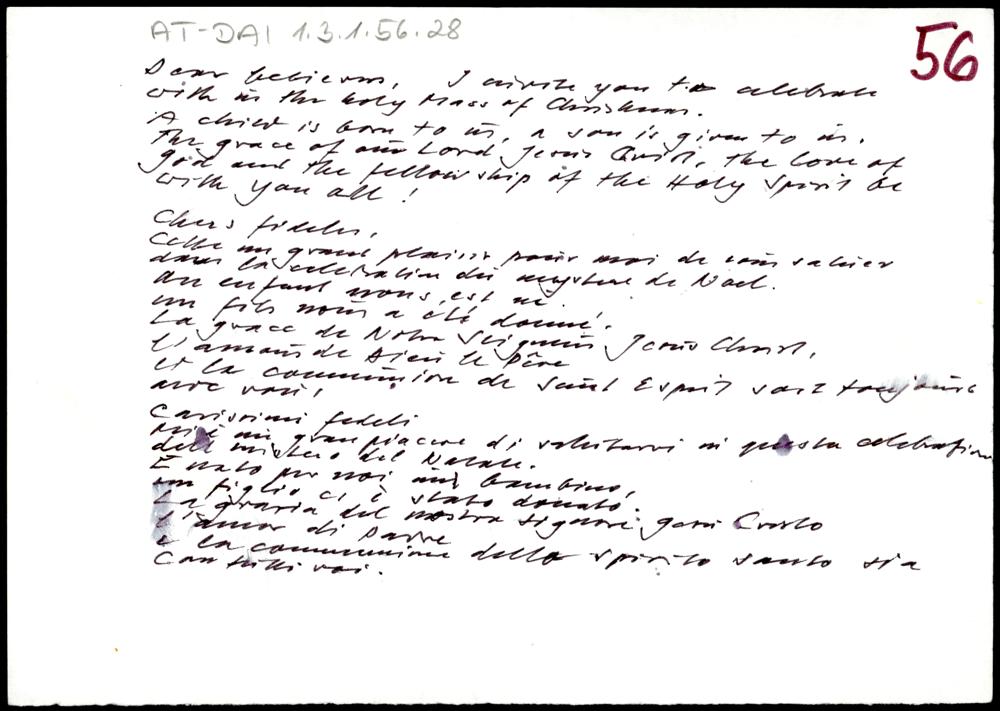 AT-DAI 1.3.1.56.28
56
Dear believers, I invite you to celebrate
with us the holy Mass of Christmas.
A child is born to us, a son is given to us.
The grace of our Lord Jesus Christ, the love of
God and the fellowship of the Holy Spirit be
with you all!
Chers fideles,
un grand plaisir pour moi de vous saluer
dans la celebration du mystere de Noel.
un enfant nous est né.
un fils nous a été donné.
La grace de Notre Seigneur Jesus Christ,
l'amour de Dieu le Père
et la communion de Saint Esprit soit toujours
avec vous!
Carissimi fedeli
un gran piacere di salutarvi in questa celebration
dell mistero del Natale.
È nato per noi un bambino,
un figlio ci è stato donato.
La grazia del nostro Signore Gesù Cristo
l'amor di Padre
e la comunione dello spirito santo sia
con tutti voi.